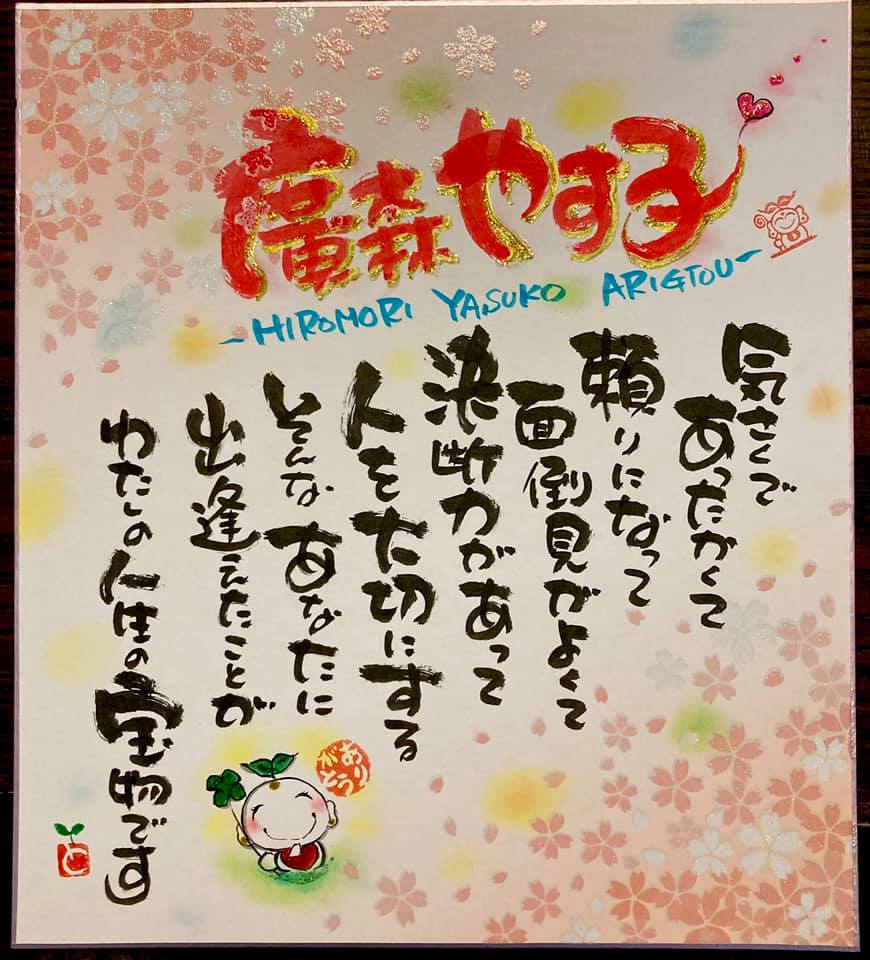 廣森やす子
-HIROMORI YASUKO ARIGTOU-
気さくで
あったかくて
頼りになって
面倒見がよくて
決断力があって
人を大切にする
そんなあなたに
出逢えたことが
わたしの人生の宝物です
ありがとう